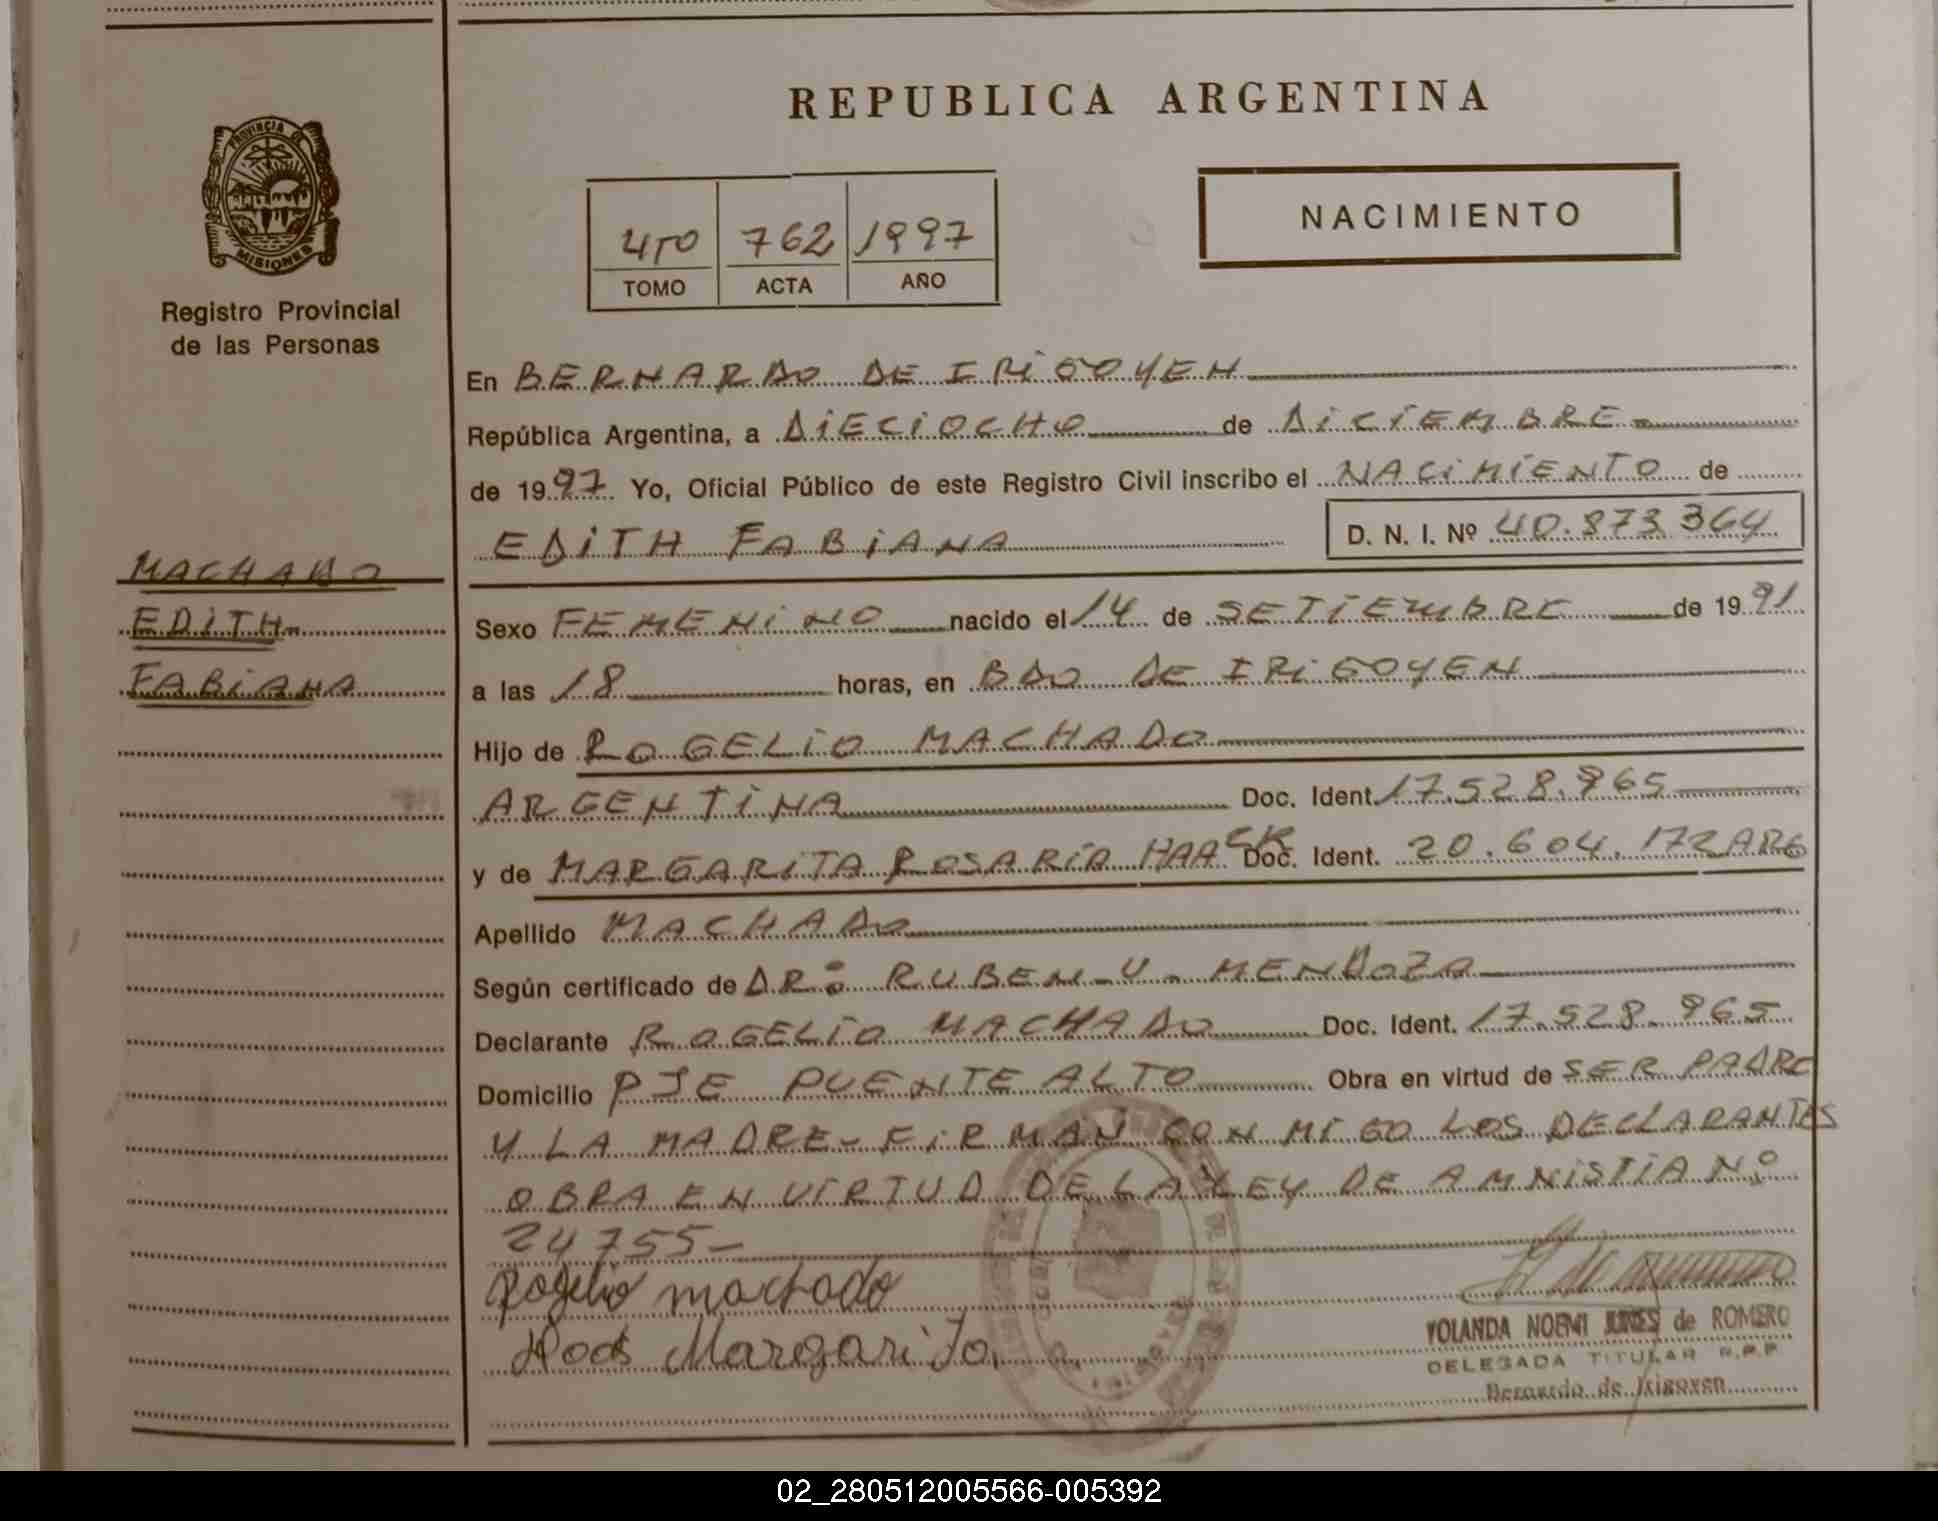 REPUBLICA ARGENTINA
PROVINCIA DE
MISIONES
Registro Provincial
de las Personas
4TO 762 1997
TOMO ACTA AÑO
NACIMIENTO
En BERNARDO DE IRIGOYEN
República Argentina, a DIECIOCHO de DICIEMBRE
de 1997 Yo, Oficial Público de este Registro Civil inscribo el NACIMIENTO de
EDITH FABIANA D. N. I. Nº 40.873.364
MACHADO
EDITH
FABIANA
Sexo FEMENINO nacido el 14 de SETIEMBRE de 1991
a las 18 horas, en BDO DE IRIGOYEN
Hijo de ROGELIO MACHADO
ARGENTINA Doc. Ident. 17.528.965
y de MARGARITA ROSARIA HAACK Doc. Ident. 20.604.172 ARG
Apellido MACHADO
Según certificado de DR: RUBEN U. MENDOZA
Declarante ROGELIO MACHADO Doc. Ident. 17.528.965
Domicilio PJE PUENTE ALTO Obra en virtud de SER PADRE
Y LA MADRE - FIRMAN CON MIGO LOS DECLARANTES
OBRA EN VIRTUD DE LA LEY DE AMNISTIA Nº
24755-
Rogelio machado
Margarita
YOLANDA NOEMI de ROMERO
DELEGADA TITULAR R.P.P.
Bernardo de Irigoyen
02_280512005566-005392